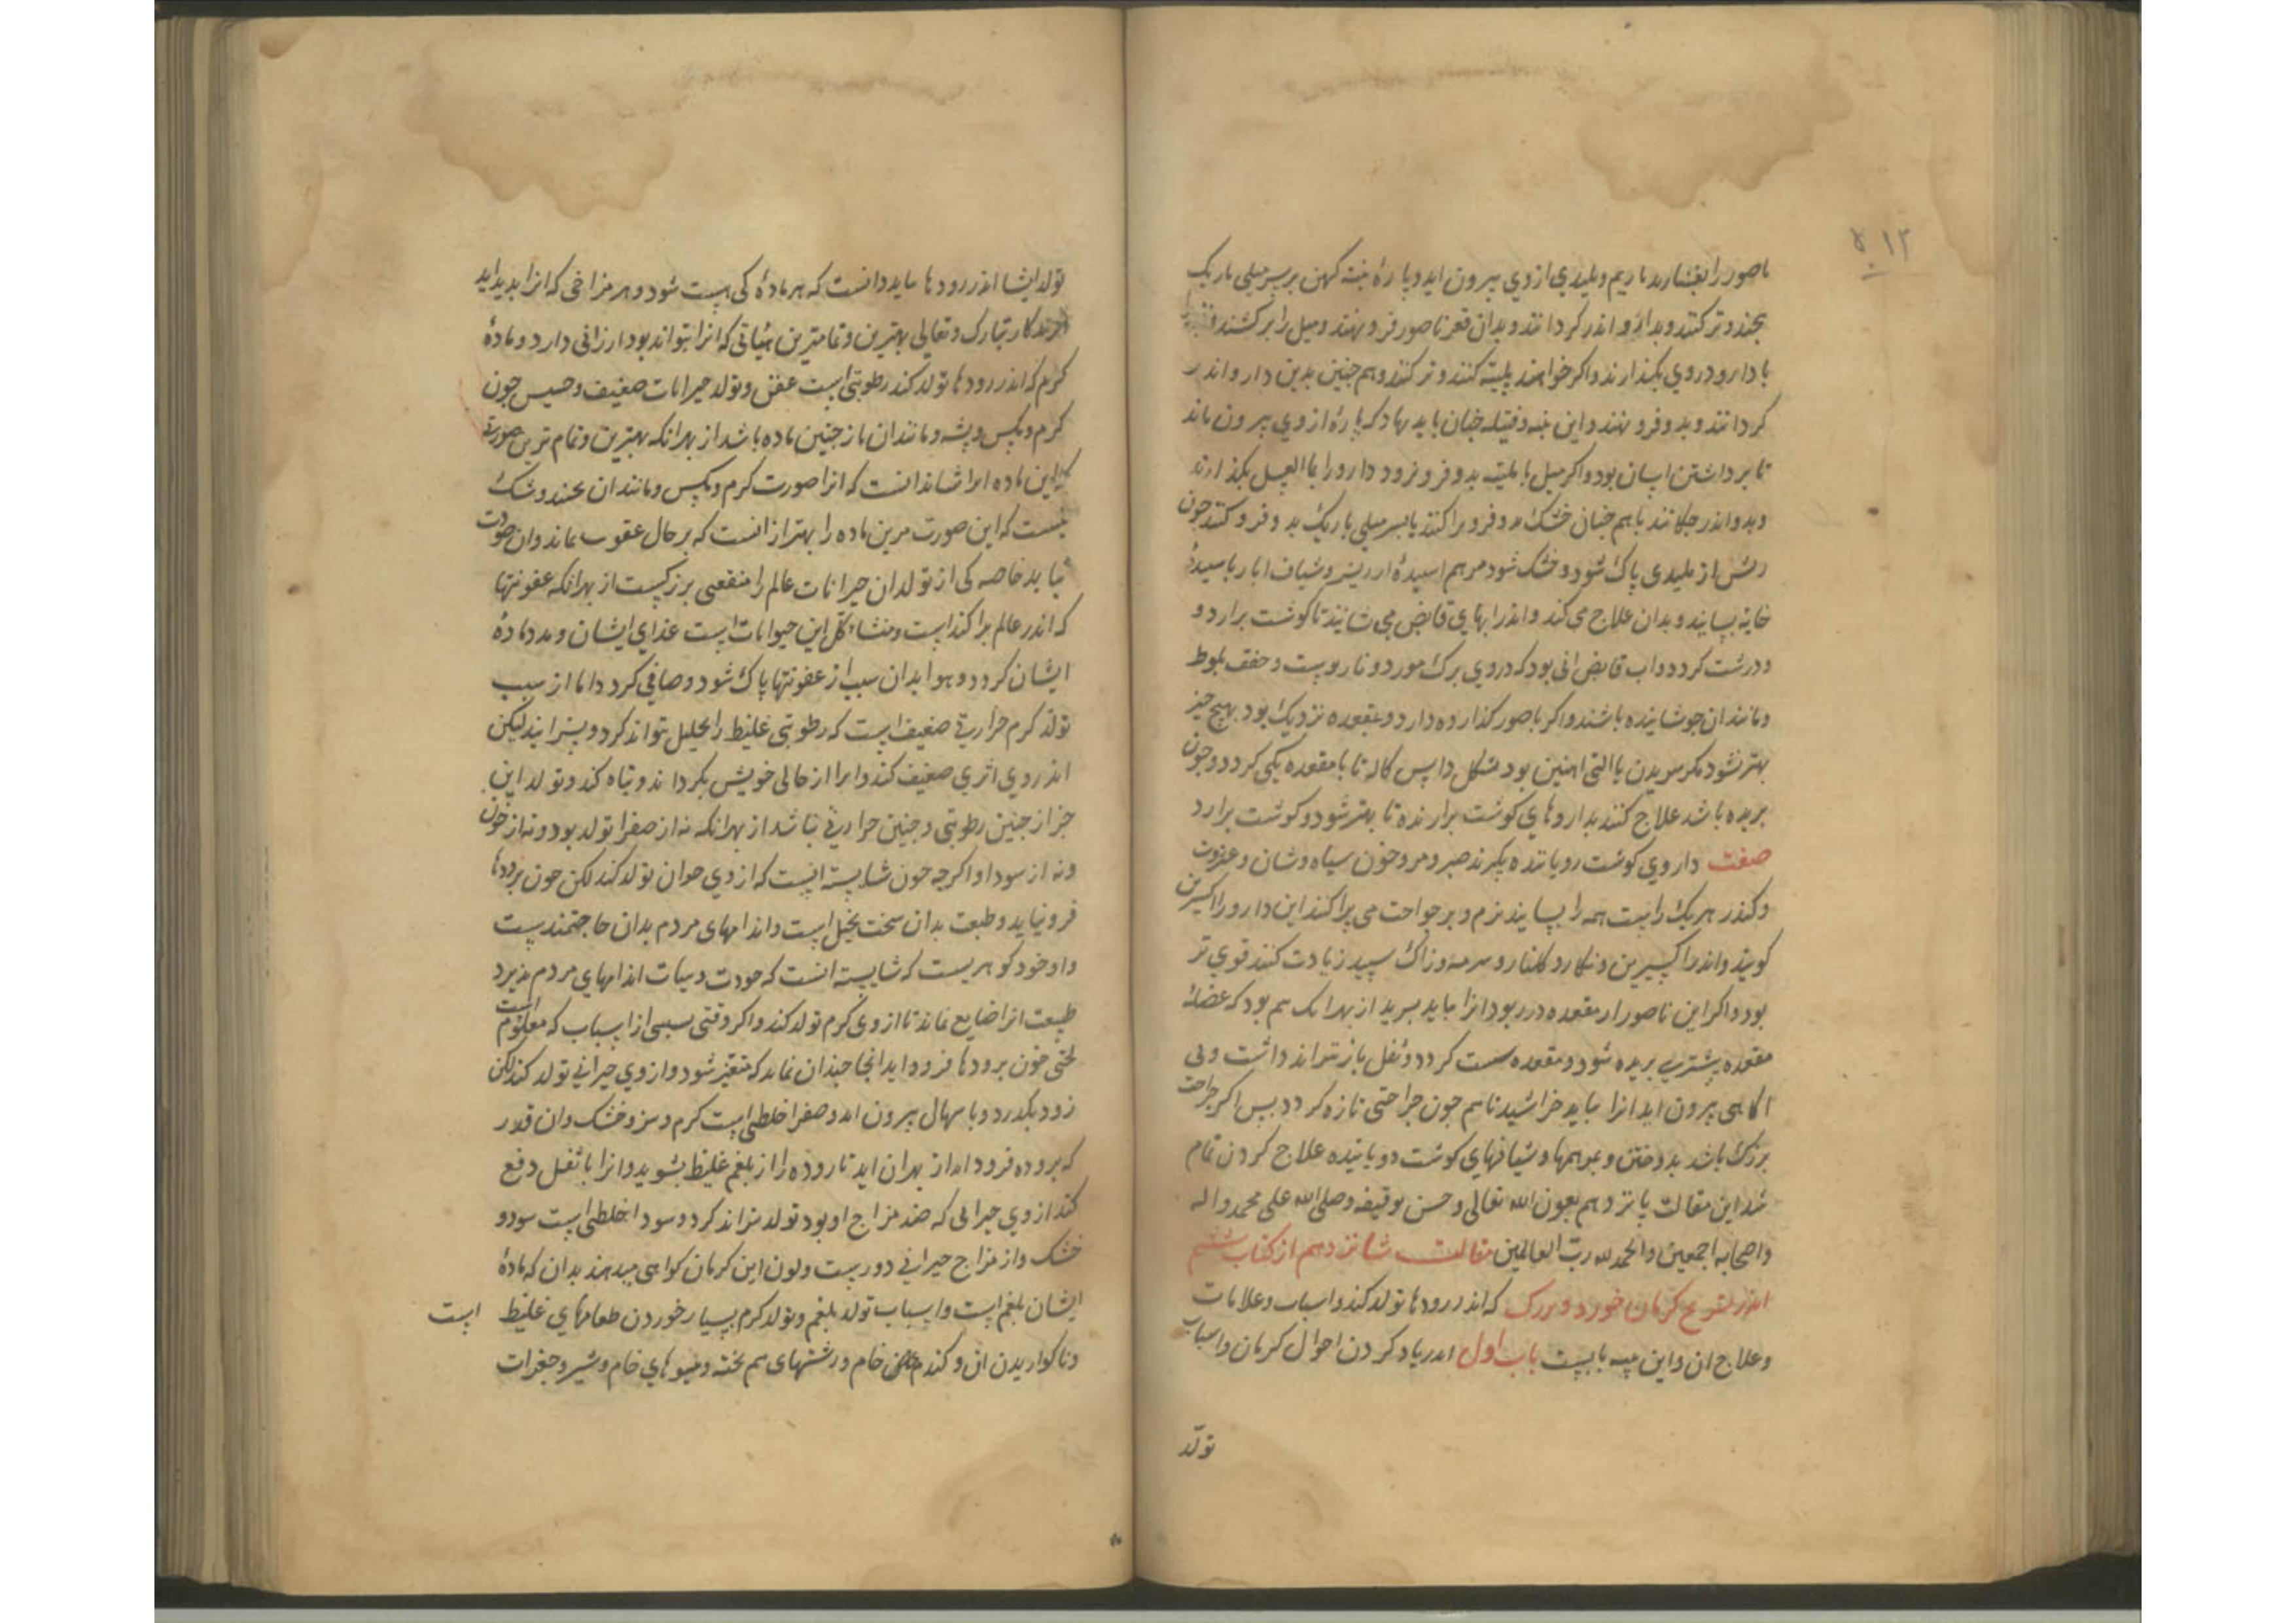 ۵۱۳
ناصور را بفشارند تا ریم و پلیدی ازوی بیرون اید و پارهٔ پنبه کهن بر سر میلی باریک
بجند و تر کنند و بدارو اندر کردانند و بدان قعر ناصور فرو نهند و میل را برکشند
با دارو دروی بکذارند واکر خواهند پلیته کنند و تر کنند و هم جنین بدین دارو اندر
کردانند و بدو فرو نهند و این پنبه و فتیله جنان باید نهاد که پارهٔ ازوی بیرون ماند
تا برداشتن اسان بود واکر میل با پلیته بدو فرو نرود دارو را با العسل بکذارند
و بدو اندر جکانند یا هم جنان خشک بدو فرو براکنند یا بسر میلی باریک بدو فرو کنند جون
ریش از پلیدی پاک شود و خشک شود مرهم اسپیدهٔ ارزیز و شیاف ابار با سپیدهٔ
خایه بسایند و بدان علاج می کند و اندر ابهای قابض می شانند تا کوشت برارد و
درشت کردد و اب قابض انی بود که دروی برک مورد و نار پوست و جفت بلوط
و مانند ان جوشانیده باشند واکر ناصور کذارده دارد و بمقعده نزدیک بود بهیچ جیز
بهتر نشود مکر ببریدن یا التی اهنین بود بشکل داس کاله تا با مقعده یکی کردد و جون
بریده باشد علاج کنند بداروهای کوشت برارنده تا بهتر شود و کوشت برارد
صفت داروی کوشت رویاننده بکیرند صبر و مر و خون سیاوشان و عنزروت
و کندر هر یک راست همه را بسایند نرم و بر جراحت می براکنند این دارو را اکسیرین
کویند و اندر اکسیرین زنکار و کلنار و سرمه و زاک سپید زیادت کنند قوی تر
بود واکر این ناصور از مقعده دور بود انرا نباید برید از بهر انک بیم بود که عضلهٔ
مقعده بیشتری بریده شود و مقعده سست کردد و ثفل باز نتواند داشت و بی
اکاهی بیرون اید انرا بباید خراشید تا هم جون جراحتی تازه کردد بس اکر جراحت
بزرک باشد بدوختن و بمرهمها و شیافهای کوشت رویاننده علاج کردن تمام
شد این مقالت پانزدهم بعون الله تعالی و حسن توفیقه وصلی الله علی محمد واله
واصحابه اجمعین والحمد لله رب العالمین مقالت شانزدهم از کتاب ششم
اندر تشریح کرمان خورد و بزرک که اندر رودها تولد کند و اسباب و علامات
و علاج ان و این سه بابست باب اول اندر یاد کردن احوال کرمان و اسباب
تولّد
تولد ایشا اندر رودها بباید دانست که هر مادهٔ کی هست شود و هر مزاجی که انرا بدید اید
افریدکار تبارک و تعالی بهترین و تمامترین هیأتی که انرا بتواند بود ارزانی دارد و مادهٔ
کرم که اندر رودها تولد کند رطوبتی است عفن و تولد حیوانات ضعیف و خسیس جون
کرم و مکس و پشه و مانند ان از جنین ماده باشد از بهر انکه بهترین و تمام ترین صورت
که این ماده انرا شاید انست که انرا صورت کرم و مکس و مانند ان بخشد و شک
نیست که این صورت مرین ماده را بهتر از انست که بر حال عفونت بماند و ان صورت
نیابد خاصه کی از تولد ان حیوانات عالم را منفعتی بزرکست از بهر انکه عفونتها
که اندر عالم براکنده است و منشاء کل این حیوانات است غذای ایشان و مدد مادهٔ
ایشان کردد و هوا بدان سبب از عفونتها پاک شود و صافی کردد و اما از سبب
تولد کرم حرارتی ضعیف است که رطوبتی غلیظ را تحلیل نتواند کرد و بپزانید لیکن
اندر وی اثری ضعیف کند و انرا از حالی خویش بکرداند و تباه کند و تولد این
جز از جنین رطوبتی و جنین حرارتی نباشد از بهر انکه نه از صفرا تولد بود و نه از خون
و نه از سودا و اکرجه خون شایسته انست که ازوی حیوان تولد کند لکن خون برودها
فرو نیاید و طبیعت بدان سخت بخیل است و اندامهای مردم بدان حاجتمندست
و او خود کوهریست که شایسته انست که صورت و هیأت اندامهای مردم پذیرد
طبیعت انرا ضایع نماند تا ازوی کرم تولد کند واکر وقتی بسببی از اسباب که معلوم است
لختی خون برودها فرود اید انجا جندان نماند که متغیر شود و ازوی حیوانی تولد کند لکن
زود بکذرد و با سهال بیرون اید و صفرا خلطی است کرم و تیز و خشک و ان قدر
که بروده فرود اید از بهر ان اید تا روده را از بلغم غلیظ بشوید و انرا با ثفل دفع
کند ازوی حیوانی که ضد مزاج او بود تولد نتواند کرد و سودا خلطی است سرد و
خشک و از مزاج حیوانی دورست ولون این کرمان کواهی میدهند بدان که مادهٔ
ایشان بلغم است و اسباب تولد بلغم و تولد کرم بسیار خوردن طعامهای غلیظ است
و ناکواریدن ان و کندم خام و رشتهای نیم پخته و میوهای خام و شیر و جغرات